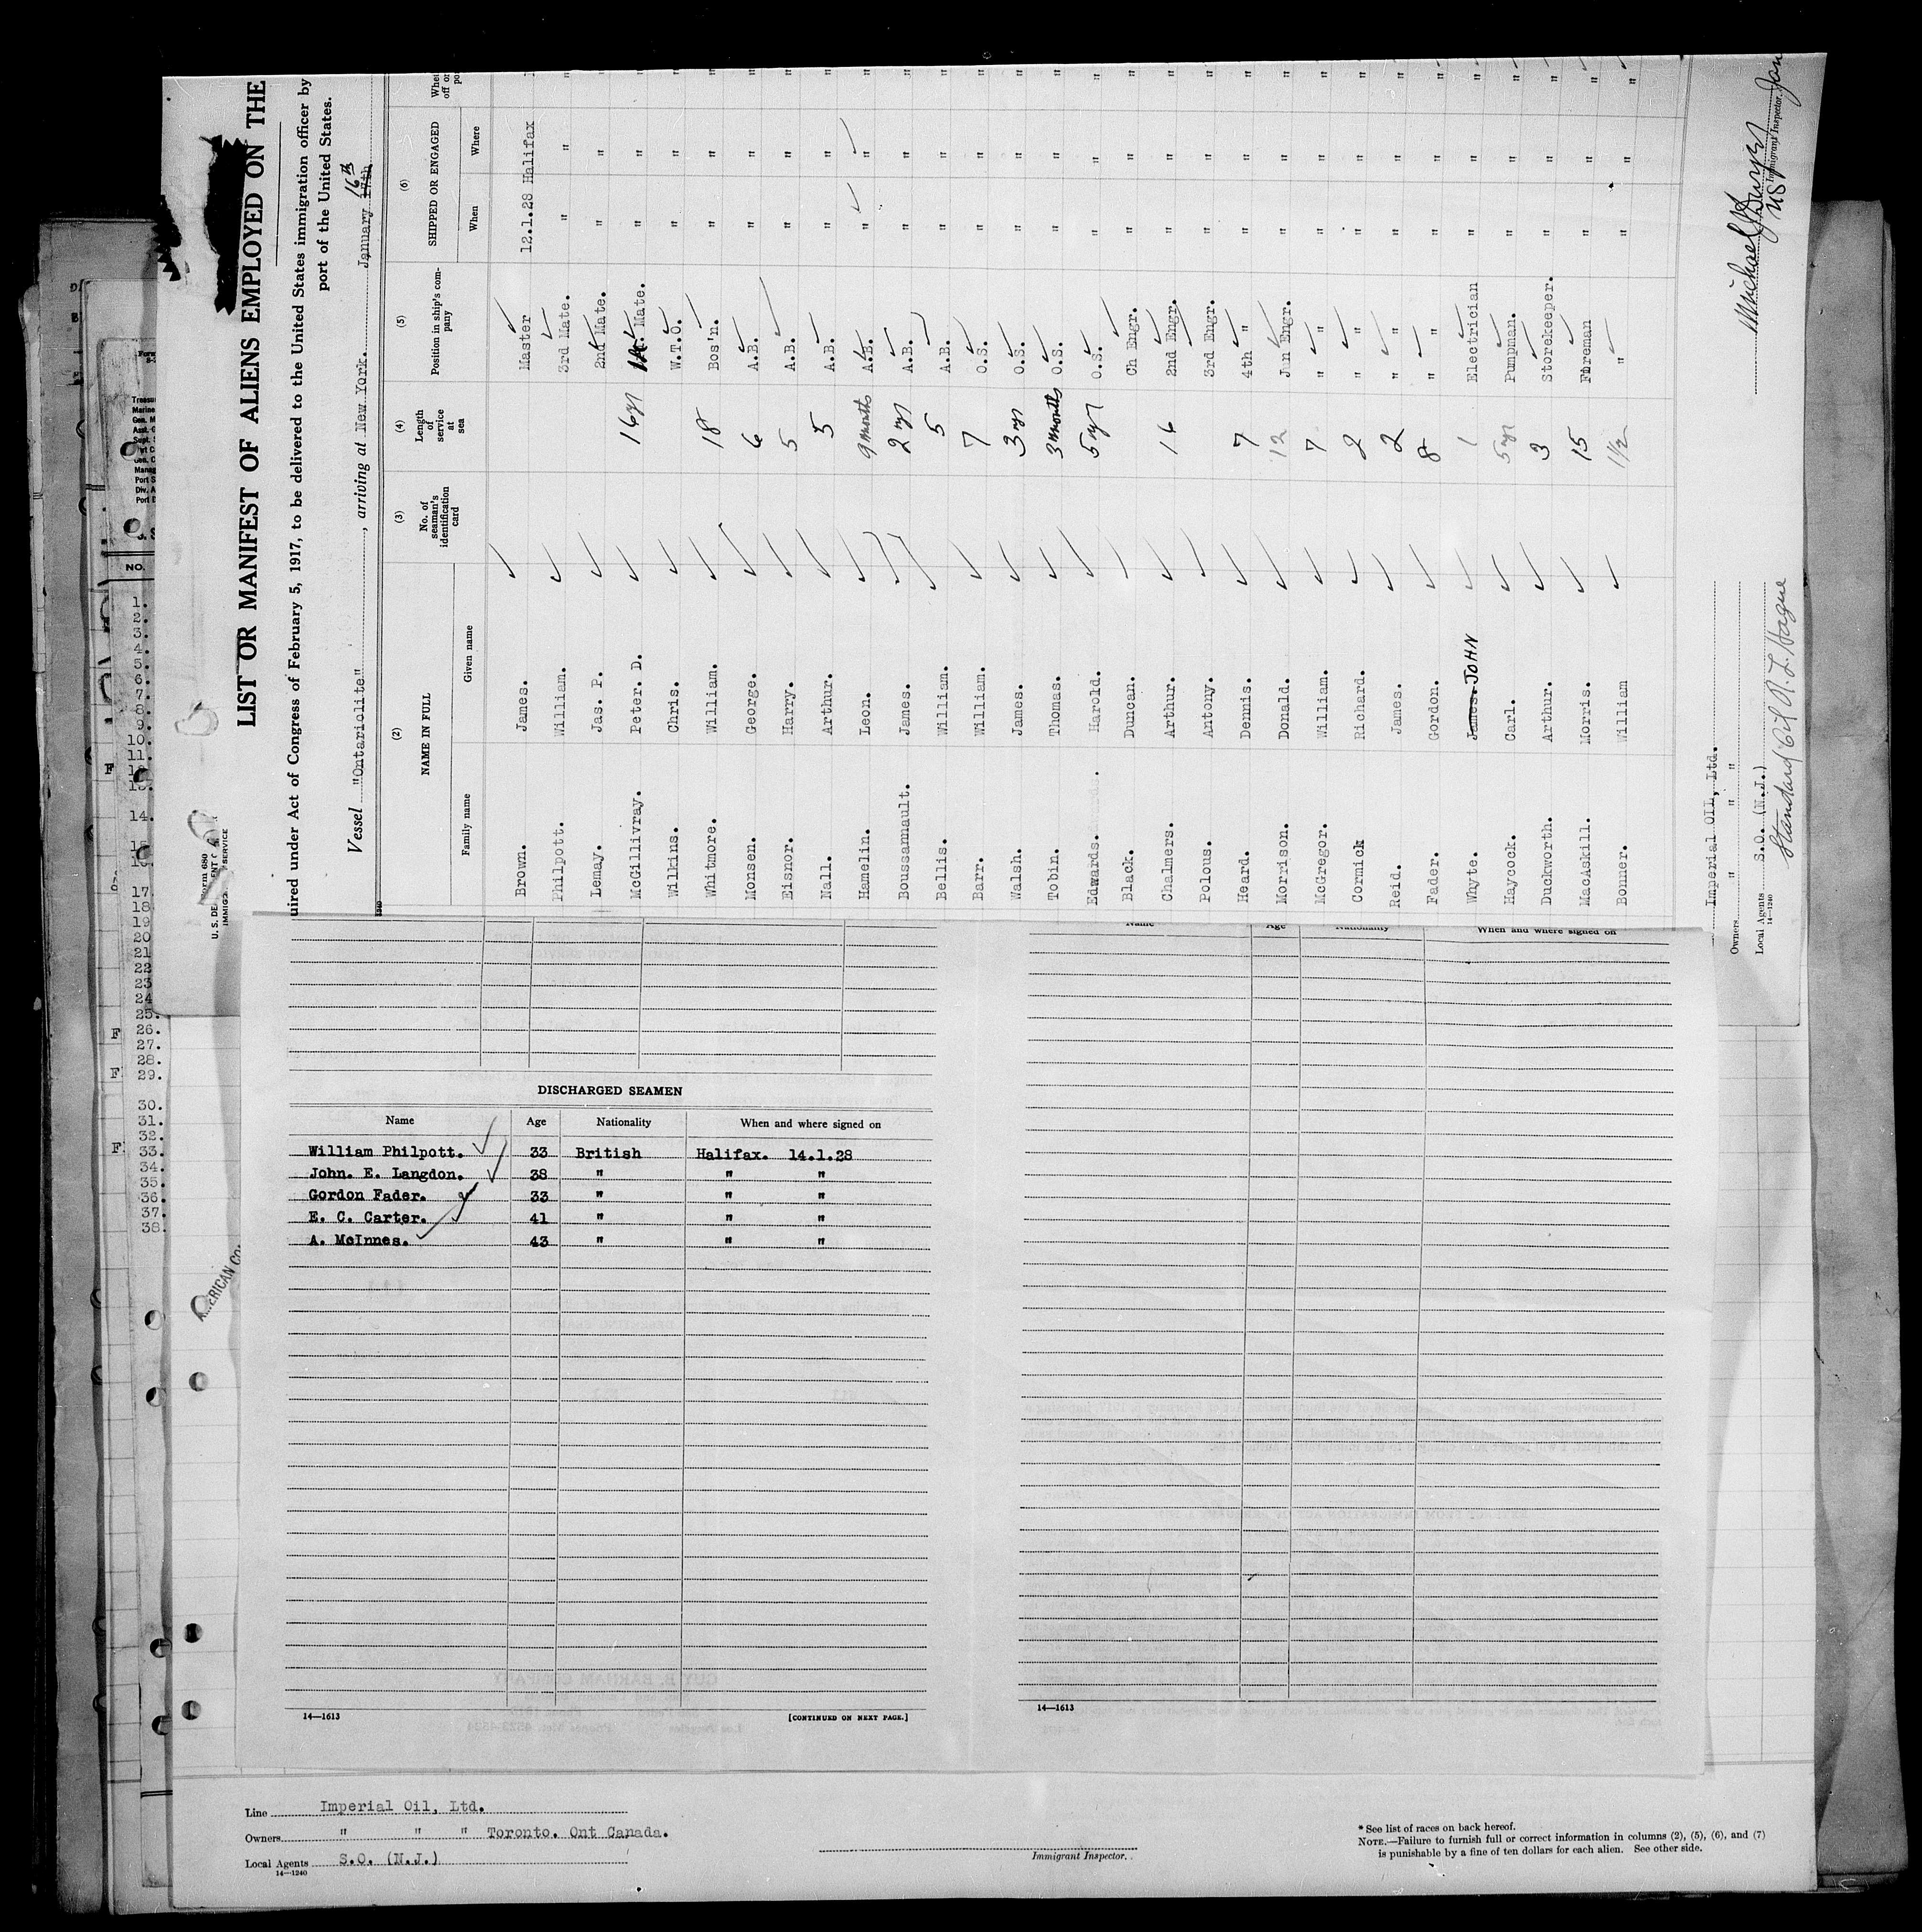 LIST OR MANIFEST OF ALIENS EMPLOYED ON THE
uired under Act of Congress of February 5, 1917, to be delivered to the United States immigration officer by
port of the United States.
Vessel "Ontariolite", arriving at New York. January 17th 16th
(2) (3) (4) (5) (6)
NAME IN FULL No. of seaman's identification card Length of service at sea Position in ship's company SHIPPED OR ENGAGED
Family name Given name When Where
Brown. James. Master 12.1.28 Halifax
Philpott. William. 3rd Mate. " "
Lemay. Jas. P. 2nd Mate. " "
McGillivray. Peter. D. 16 yr Mate. " "
Wilkins. Chris. W.T.O. " "
Whitmore. William. 18 Bos'n. " "
Monsen. George. 6 A.B. " "
Eisnor. Harry. 5 A.B. " "
Hall. Arthur. 5 A.B. " "
Hamelin. Leon. 9 months A.B. " "
Boussannault. James. 2 yr A.B. " "
Bellis. William. 5 A.B. " "
Barr. William. 7 O.S. " "
Walsh. James. 3 yr O.S. " "
Tobin. Thomas. 3 months O.S. " "
Edwards. Harold. 5 yr O.S. " "
Black. Duncan. Ch Engr. " "
Chalmers. Arthur. 16 2nd Engr. " "
Polous. Antony. 3rd Engr. " "
Heard. Dennis. 7 4th " " "
Morrison. Donald. 12 Jun Engr. " "
McGregor. William. 7 " " " "
Cormick Richard. 2 " " " "
Reid. James. 2 " " " "
Fader. Gordon. 8 " " " "
Whyte. James. JOHN 1 Electrician " "
Haycock. Carl. 5 yr Pumpman. " "
Duckworth. Arthur. 3 Storekeeper. " "
MacAskill. Morris. 15 Fireman " "
Bonner. William 1½ " " "
Imperial OIL, Ltd.
Owners " " "
Local Agents S.O. (N.J.)
14—1240
Standard Oil R. L. Hague
Immigrant Inspector.
U. S. DE
IMMIG SERVICE
NO.
1.
2.
3.
4.
5.
6.
7.
8.
9.
10.
11.
14.
17.
18
19
20
21
22
23
24
25.
26.
27.
28.
29.
30.
31.
32.
33.
34.
35.
36.
37.
38.
Name Age Nationality When and where signed on
DISCHARGED SEAMEN
Name Age Nationality When and where signed on
William Philpott. 33 British Halifax. 14.1.28
John. E. Langdon. 38 " " "
Gordon Fader. 33 " " "
E. C. Carter. 41 " " "
A. McInnes. 43 " " "
14—1613 [CONTINUED ON NEXT PAGE.]
14—1613
Line Imperial Oil, Ltd.
Owners " " " Toronto. Ont Canada.
Local Agents S.O. (N.J.)
14—1240
Immigrant Inspector.
* See list of races on back hereof.
NOTE.—Failure to furnish full or correct information in columns (2), (5), (6), and (7)
is punishable by a fine of ten dollars for each alien. See other side.